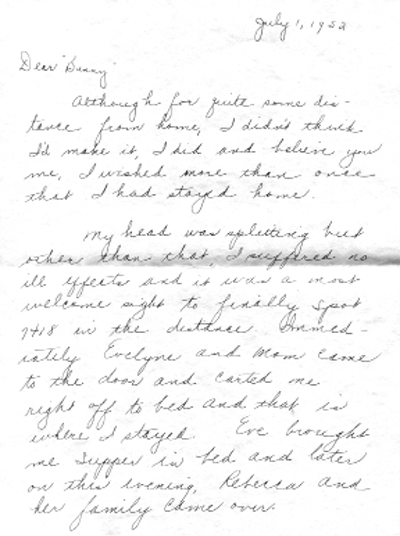 July 1, 1952
Dear "Bunny"
Although for quite some dis-
tance from home, I didn't think
I'd make it, I did and believe you
me, I wished more than once
that I had stayed home.
My head was splitting but
other than that, I suffered no
ill effects and it was a most
welcome sight to finally spot
7418 in the distance. Immed-
iately Evelyne and Mom came
to the door and carted me
right off to bed and that is
where I stayed. Eve brought
me supper in bed and later
on this evening, Rebecca and
her family came over.